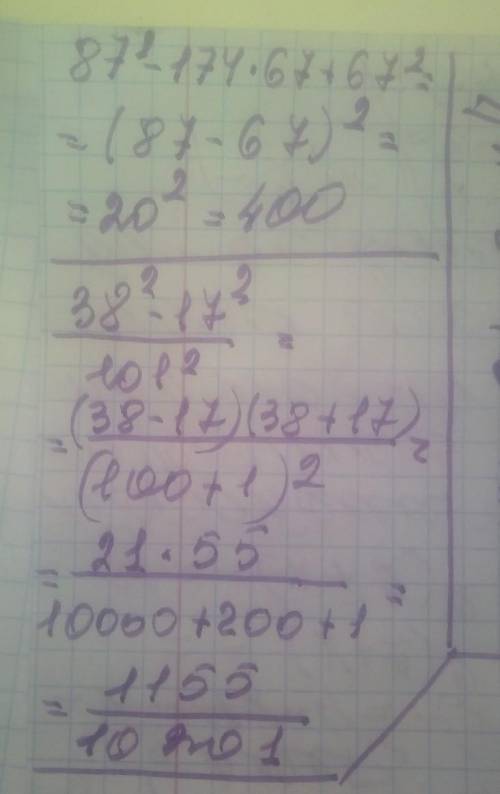 87² - 174 · 67 + 67² =
= (87 - 67)² =
= 20² = 400
38² - 17²
101²
=
= (38 - 17)(38 + 17) =
(100 + 1)²
= 21 · 55
10000 + 200 + 1 =
= 1155
10201